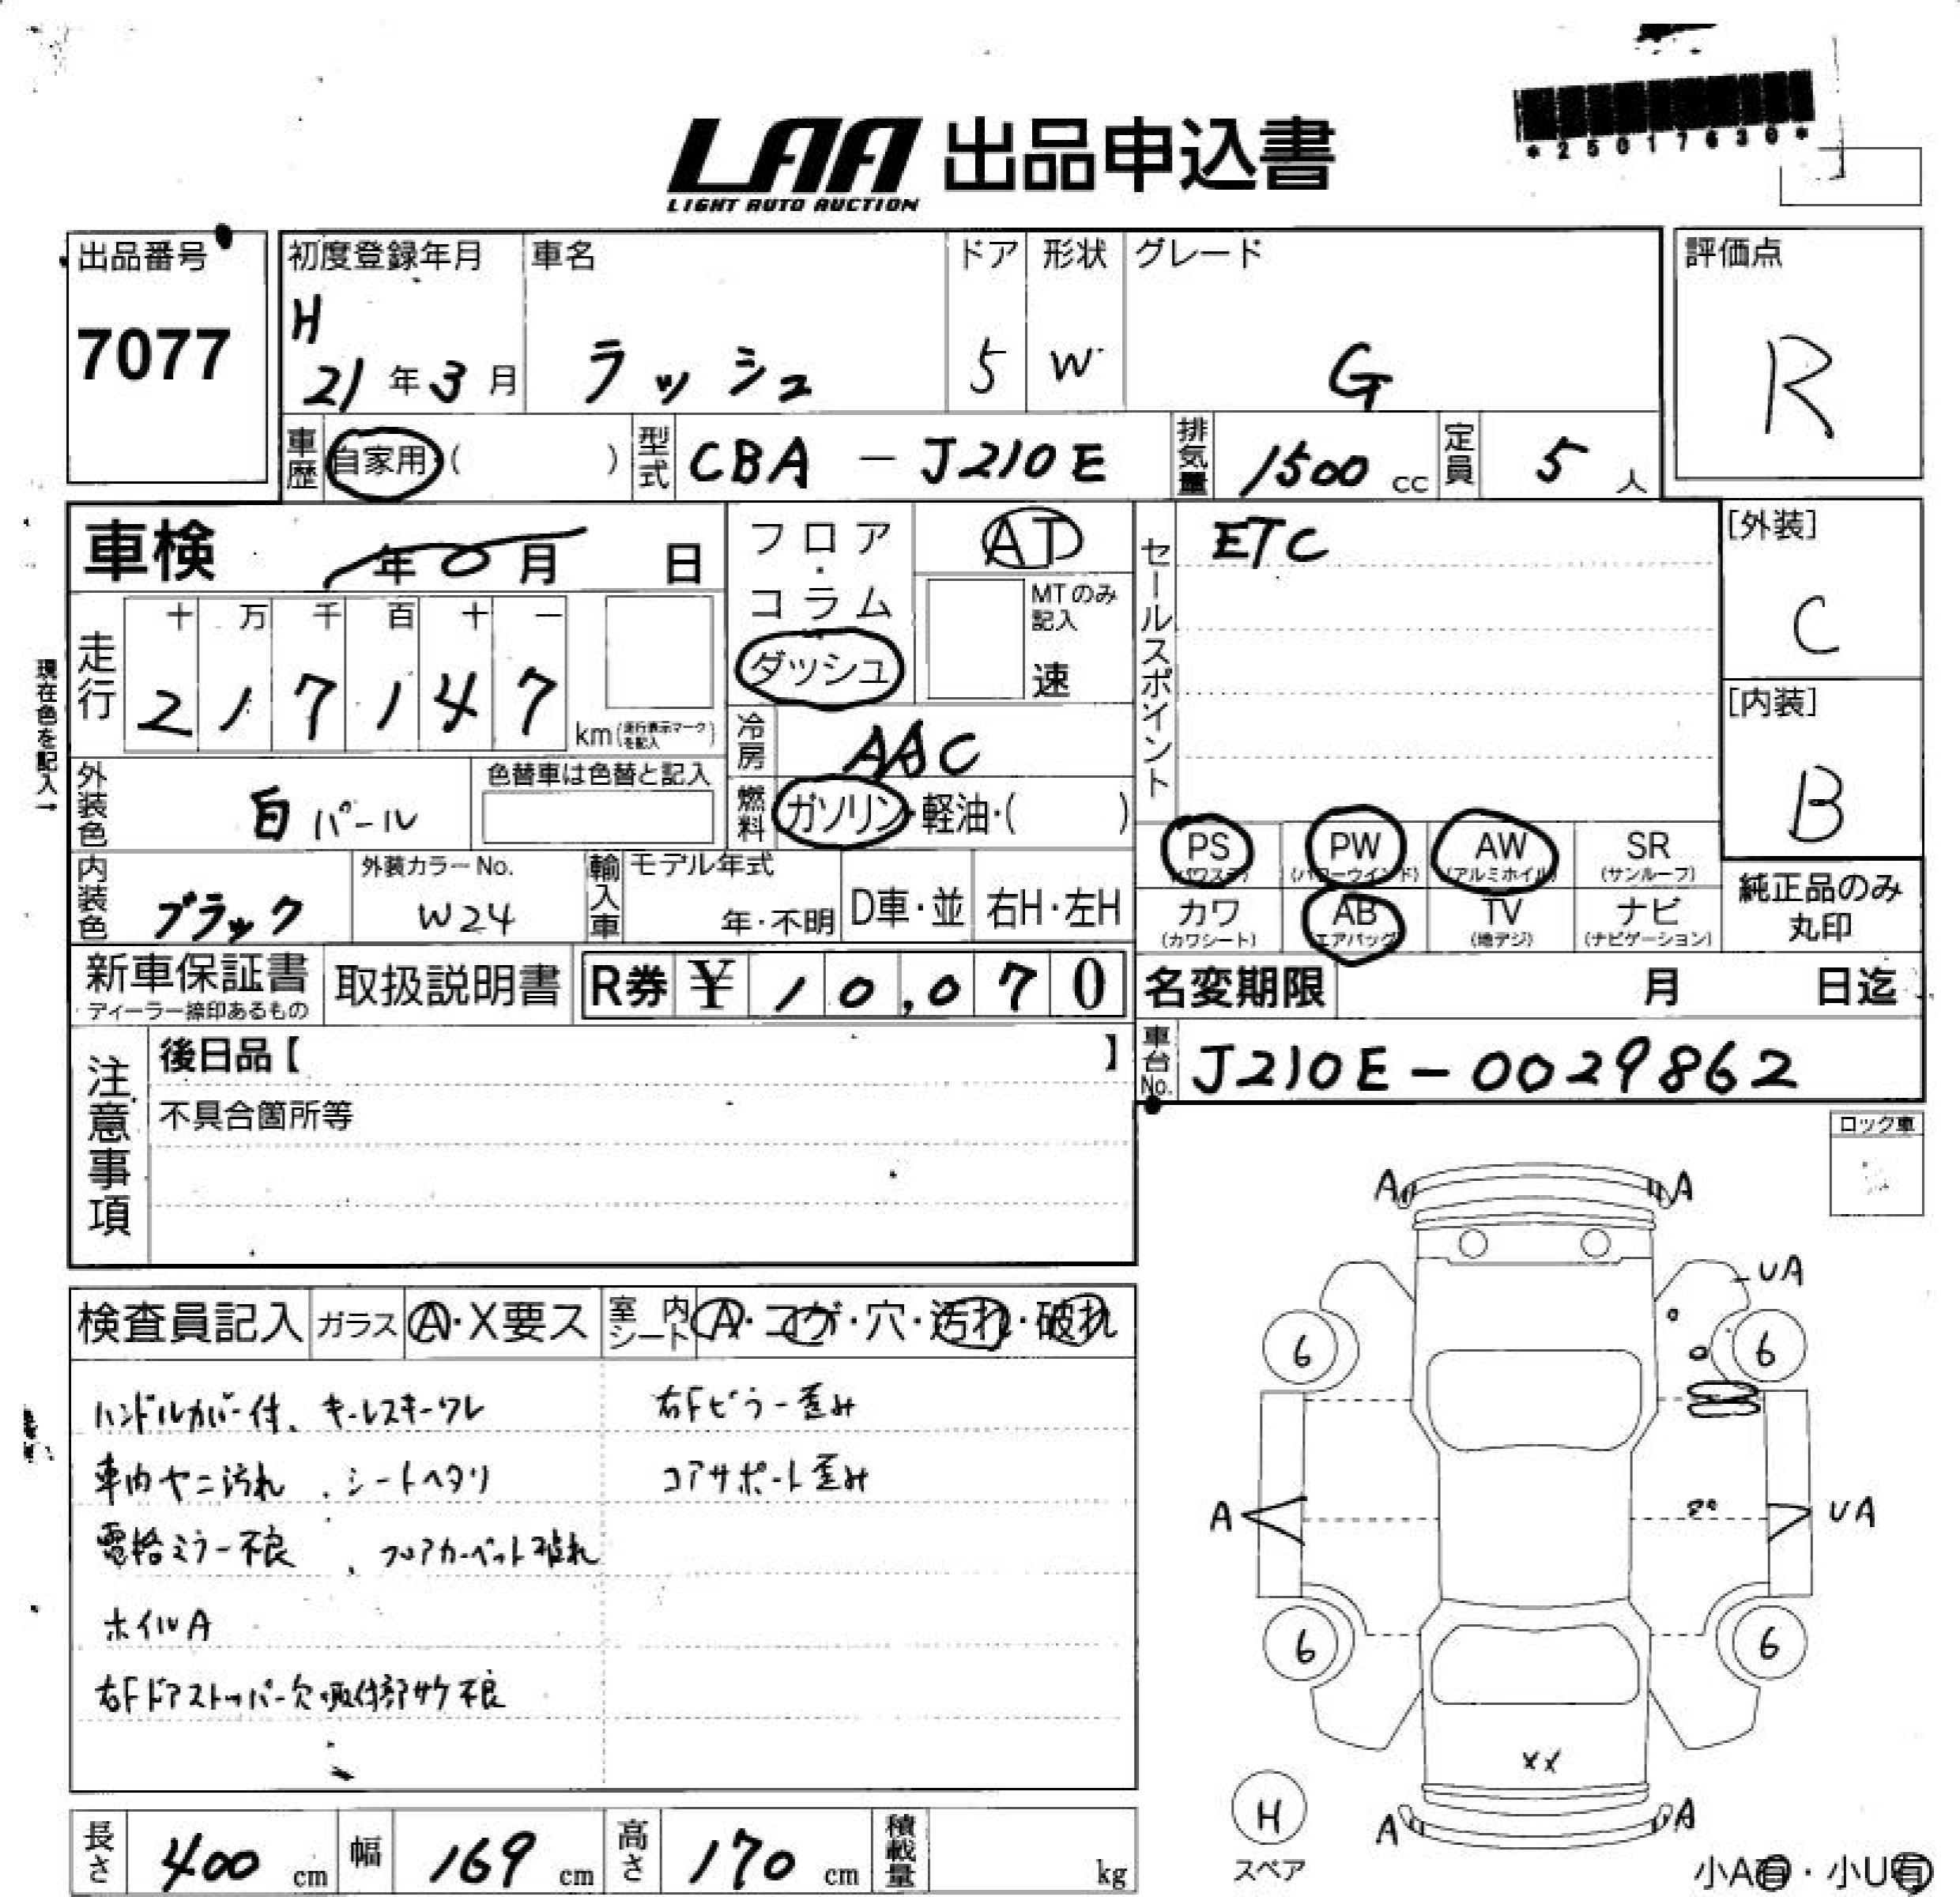 *25017630*
LAA 出品申込書
LIGHT AUTO AUCTION
出品番号
7077
初度登録年月
H
21年3月
車名
ラッシュ
ドア
5
形状
W
グレード
G
評価点
R
車歴 自家用 ( )
型式 CBA - J210E
排気量 1500 cc
定員 5 人
車検 年 0 月 日
フロア・コラム
ダッシュ
AT
MTのみ記入
速
セールスポイント
ETC
[外装]
C
[内装]
B
現在色を記入→
走行
十 万 千 百 十 一
2 1 7 1 4 7
km(走行表示マークを記入)
冷房 AAC
燃料 ガソリン・軽油・( )
外装色 白パール
色替車は色替と記入
内装色 ブラック
外装カラーNo.
W24
輸入車
モデル年式
年・不明
D車・並
右H・左H
PS (パワステ)
PW (パワーウインド)
AW (アルミホイル)
SR (サンルーフ)
カワ (カワシート)
AB (エアバッグ)
TV (地デジ)
ナビ (ナビゲーション)
純正品のみ丸印
新車保証書
ディーラー捺印あるもの
取扱説明書
R券 ¥ 10,070
名変期限 月 日迄
注意事項
後日品【 】
不具合箇所等
車台No. J210E-0029862
ロック車
検査員記入
ガラス A・X要ス
室内シート A・コゲ・穴・汚れ・破れ
ハンドルカバー付、キーレスキーワレ
車内ヤニ汚れ、シートヘタリ
電格ミラー不良、フロアカーペット破れ
ホイルA
右Fドアストッパー欠取付部サケ不良
右Fピラー歪み
コアサポート歪み
A A
UA
6 6
A UA
6 6
XX
A A
H
スペア
小A有・小U有
長さ 400 cm
幅 169 cm
高さ 170 cm
積載量 kg